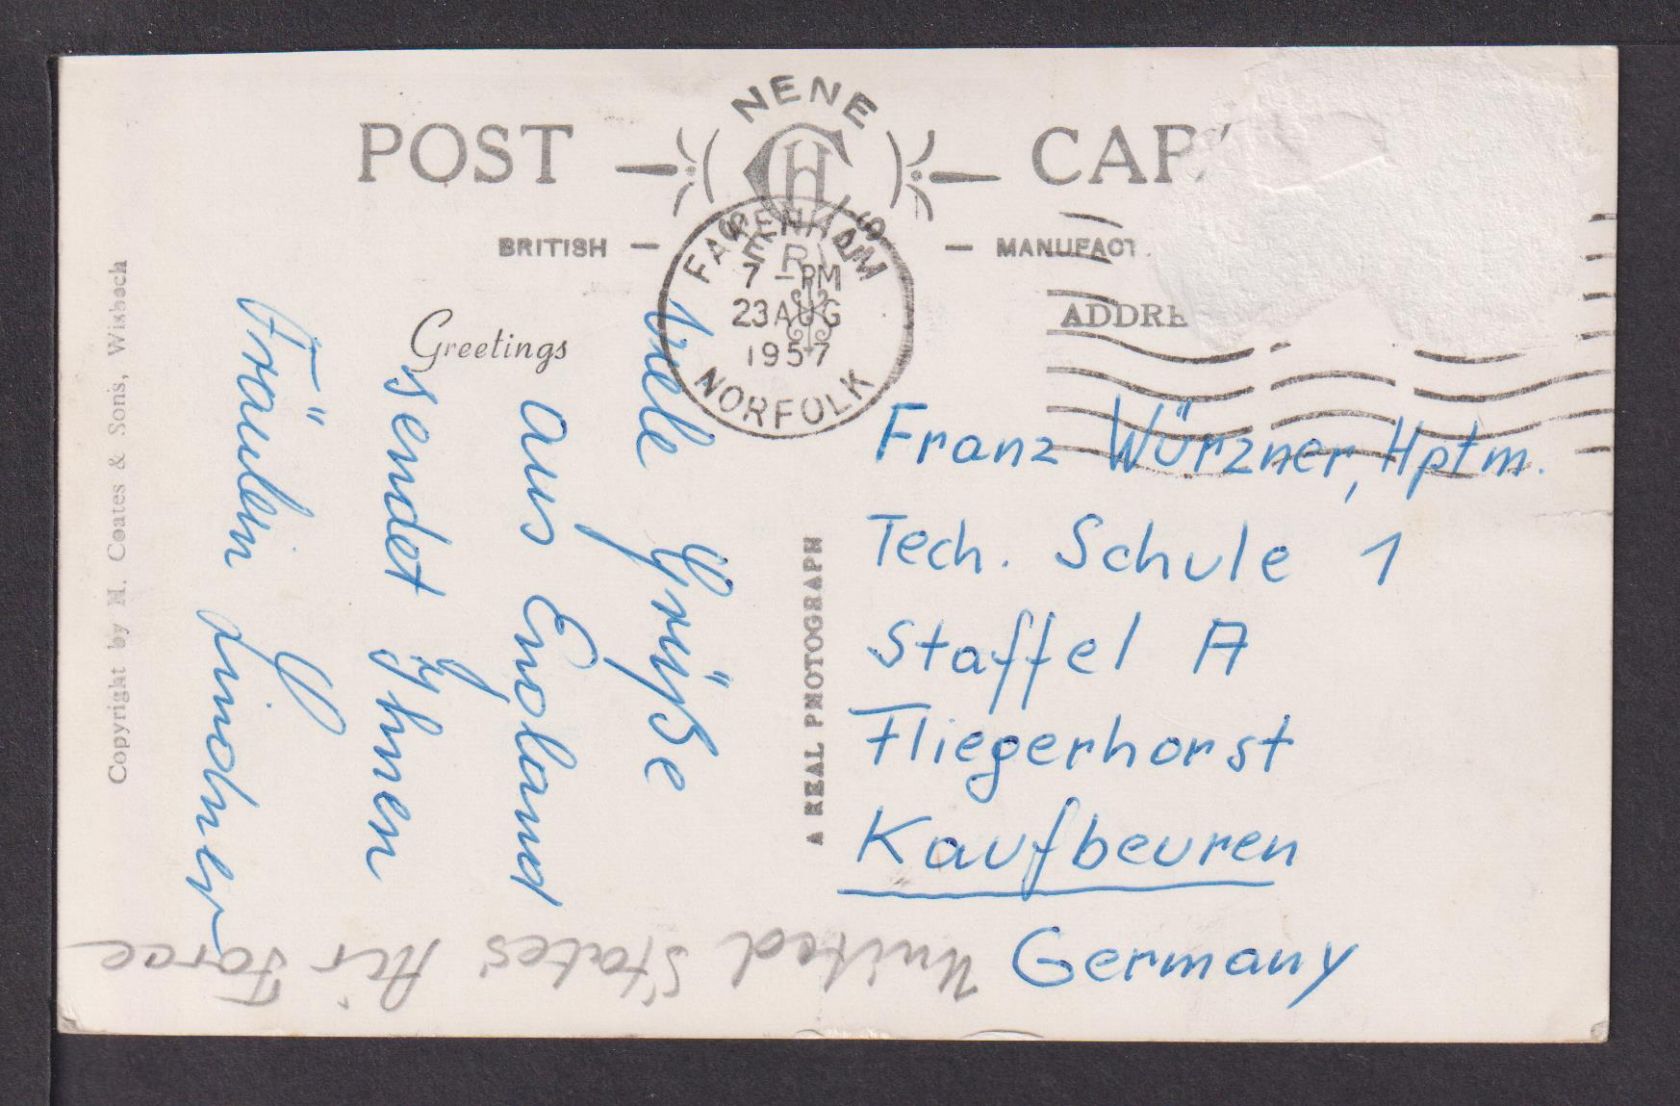 POST CAR
NENE
CH
SERIES
BRITISH — — MANUFACT
FAKENHAM
7 - PM
23 AUG
1957
NORFOLK
ADDRE
Greetings
Viele Grüße
aus England
sendet Ihnen
Fräulein Lindner
A REAL PHOTOGRAPH
Copyright by H. Coates & Sons, Wisbech
Franz Würzner, Hptm.
Tech. Schule 1
Staffel A
Fliegerhorst
Kaufbeuren
Germany
United States Air Force